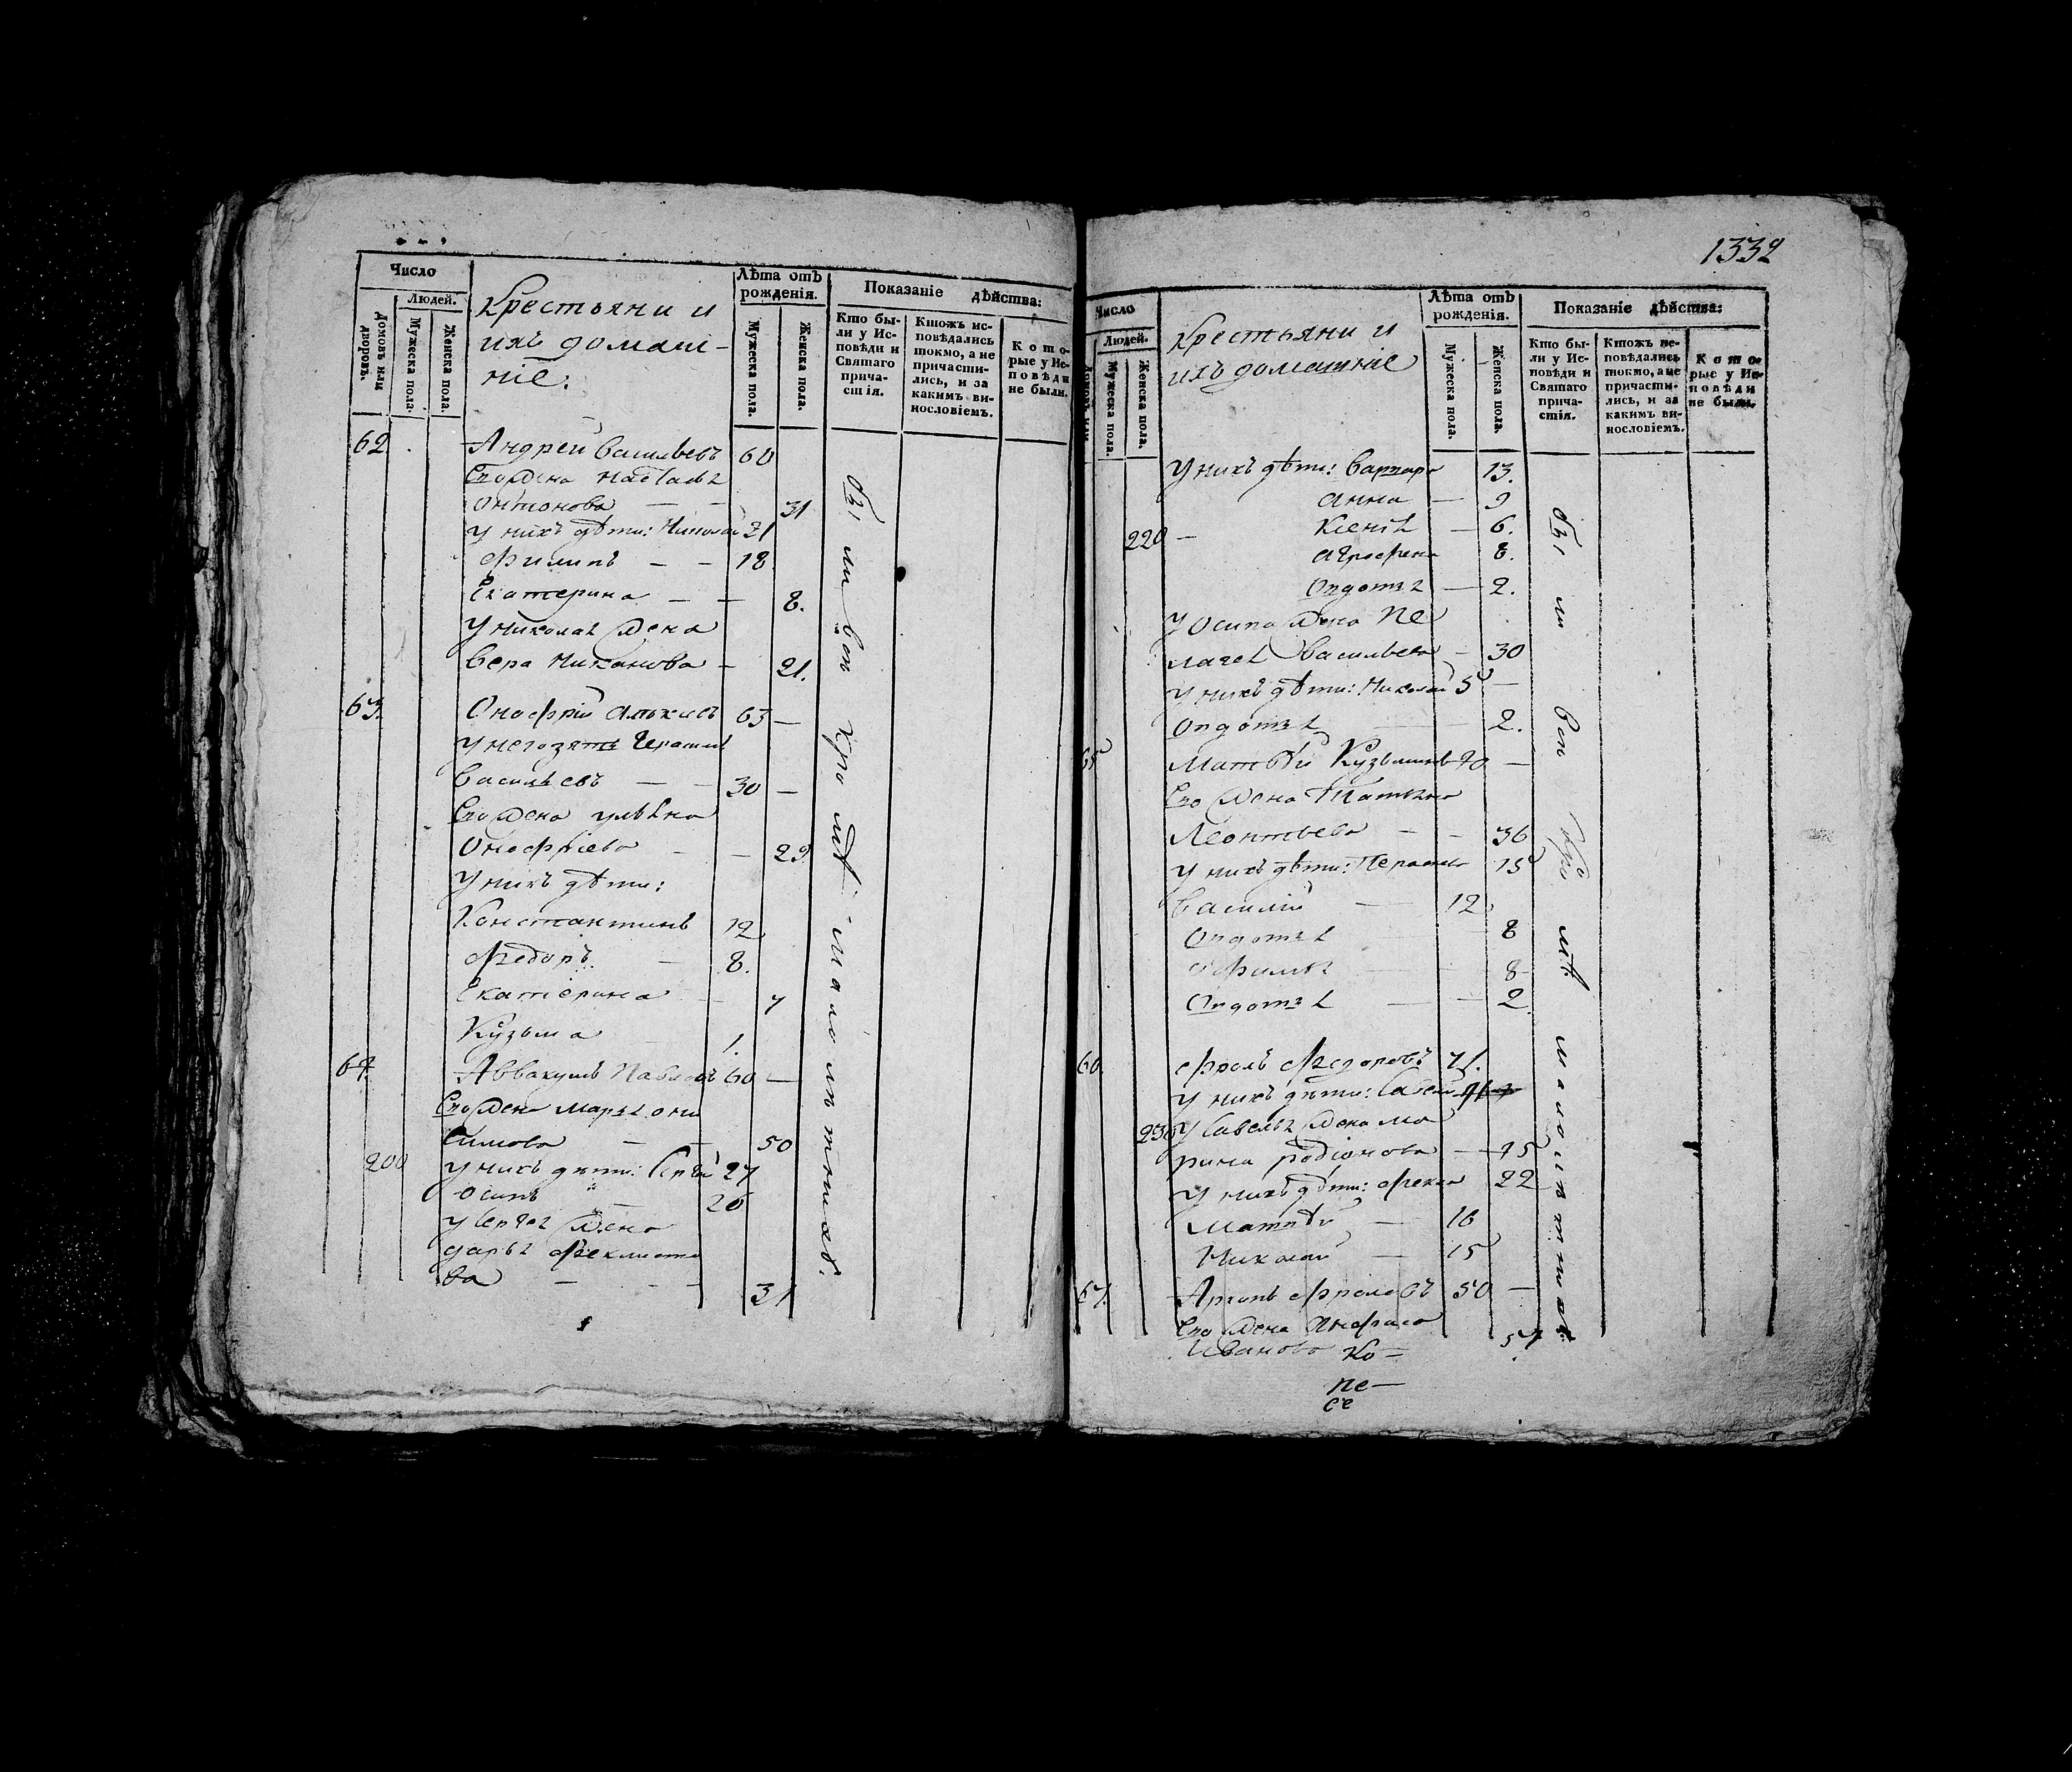 Число
Людей.
Домовъ или дворовъ.
Мужеска пола.
Женска пола.
Крестьяни и
ихъ домаш-
ніе:
Лѣта отъ
рожденія.
Мужеска пола.
Женска пола.
Показаніе дѣйства:
Кто бы-
ли у Ис-
повѣди и
Святаго
прича-
стія.
Ктожъ ис-
повѣдались
токмо, а не
причасти-
лись, и за
какимъ ви-
нословіемъ.
Кото-
рые у Ис-
повѣди
не были.
62. Андрей Васильевъ 60
Его жена Наталья
Антонова — — 31
У нихъ дѣти: Николай 21
Филипъ — — 18
Екатерина — — 8.
У Николая жена
Вера Никанова — 21.
63. Онофрій 63 —
У него зять Герасимъ
Васильевъ — — 30 —
Его жена Ульяна
Онофріева — — 29
У нихъ дѣти:
Константинъ 12
Федоръ — 8.
Екатерина — 7
Кузьма 1.
64. Аввакумъ Павловъ 60 —
Его жена Марья Они
симова — — 50
200 У нихъ дѣти: Сергѣй 27
Осипъ — 26
У Сергѣя жена
Дарья Феклисто
ва — — — 31
Бы ли всѣ кро мѣ - малолѣтныхъ.
1332
Число
Людей.
Домовъ или
Мужеска пола.
Женска пола.
Крестьяни и
ихъ домашние
Лѣта отъ
рожденія.
Мужеска пола.
Женска пола.
Показаніе дѣйства:
Кто бы-
ли у Ис-
повѣди и
Святаго
прича-
стія.
Ктожъ ис-
повѣдались
токмо, а не
причасти-
лись, и за
какимъ ви-
нословіемъ.
Кото-
рые у Ис-
повѣди
не были.
У нихъ дѣти: Варвара 13.
Анна — 9
220 — Ксенія — 6.
Агрофена 8.
Овдотья — 2.
У Осипа жена Пе
лагея Васильева — 30
У нихъ дѣти: Николай 5 —
Овдотья — — 2.
65 Матвѣй Кузьминъ 40 —
Его жена Татьяна
Леонтьева — — 36
У нихъ дѣти: 15
Василій — 12
Овдотья 8
Офимья — — 8
Овдотья — — 2
66. Фролъ Федоровъ 71.
У нихъ дѣти: Савелій
230 У Савелья жена Ма
рина Родіонова — 45
У нихъ дѣти: Фекла 22
Матвѣй — 16
Николай — 15
67. Архипъ Фроловъ 50 —
Его жена Анфиса
Иванова 57
Ко-
пе-
Бы ли всѣ кро мѣ малолѣтныхъ